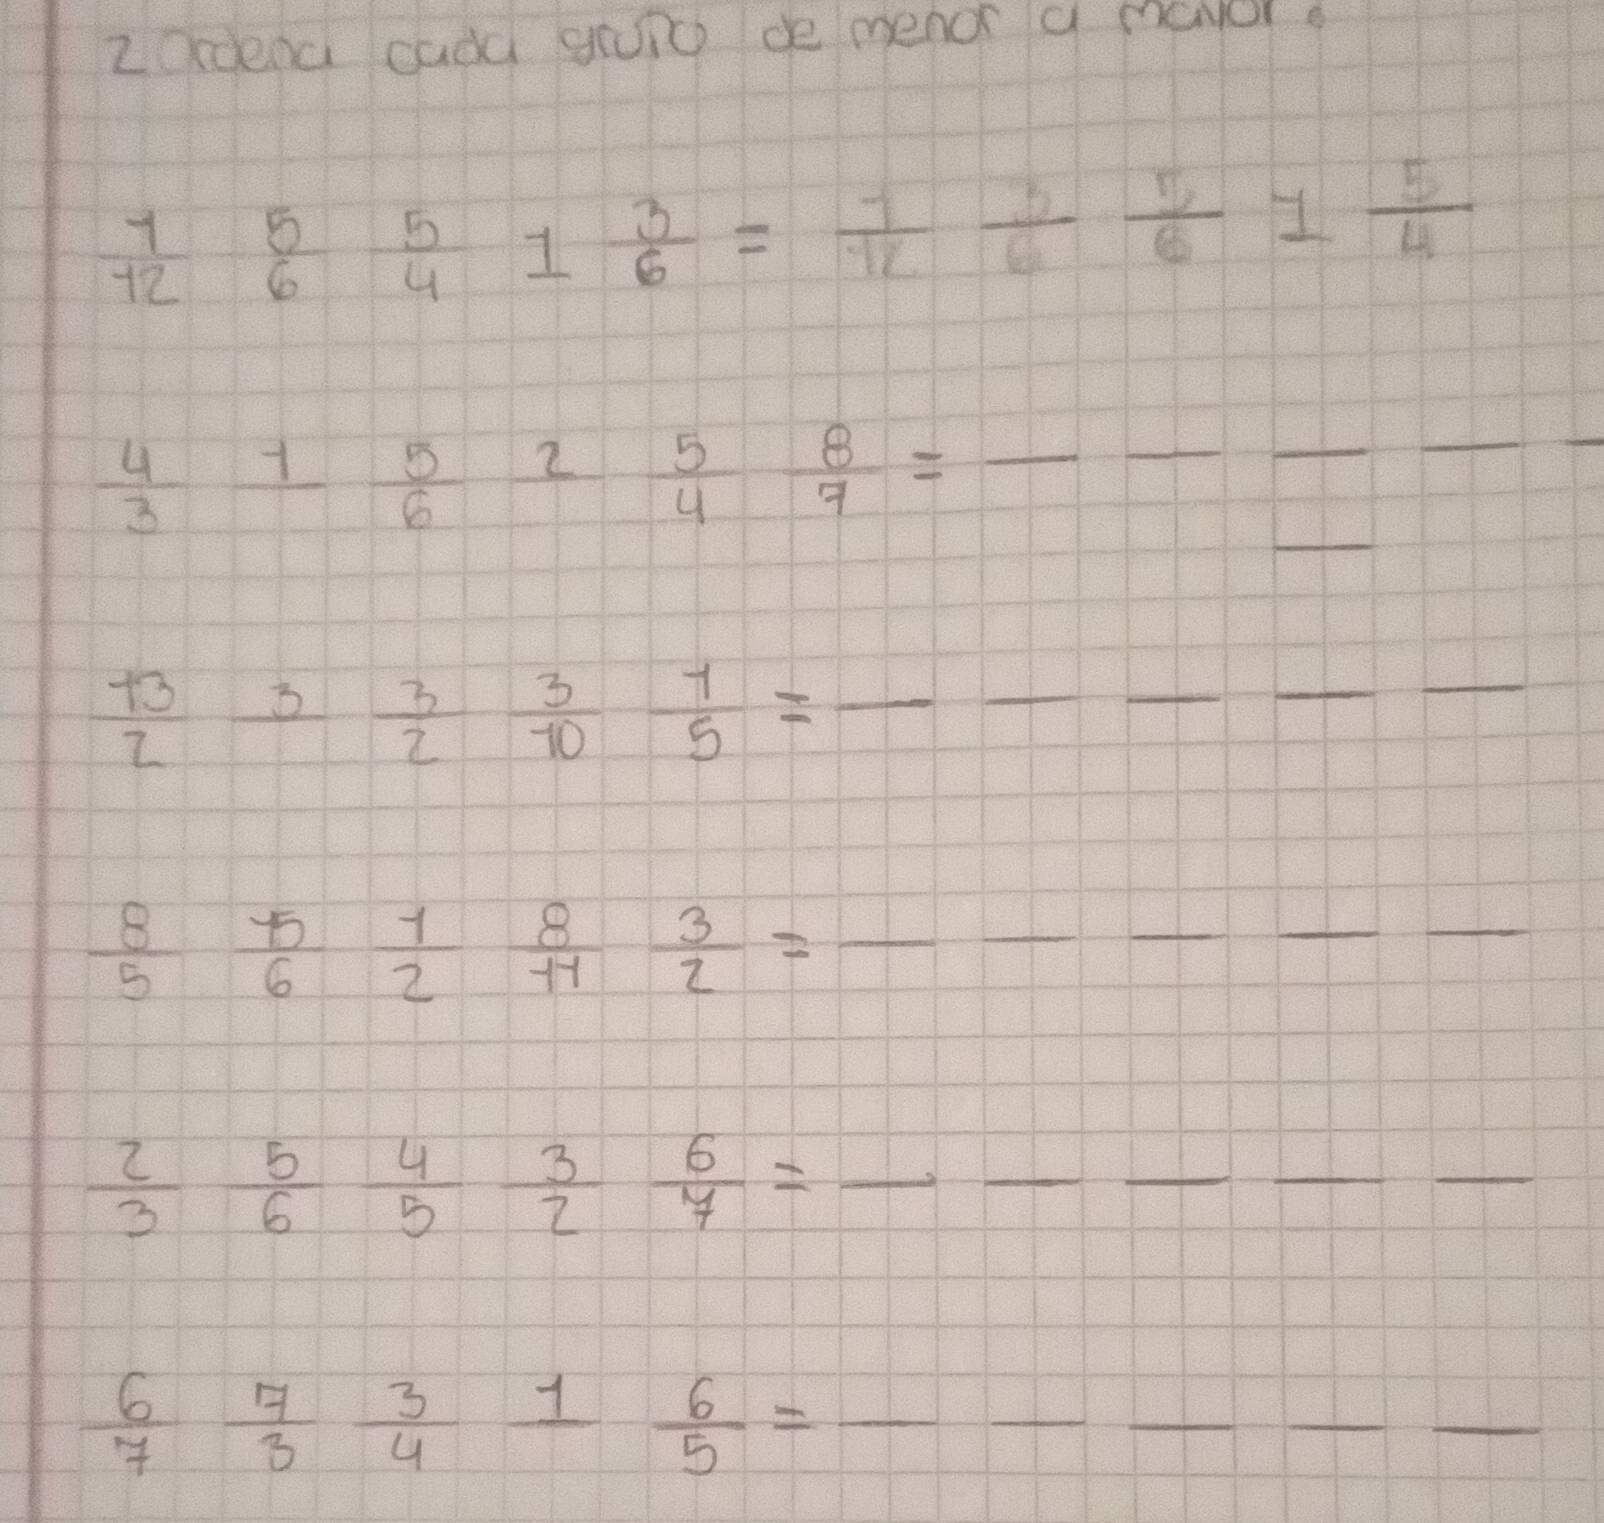 2 Ordena cada grupo de menor a mayor.
1/12 5/6 5/4 1 3/6 = 1/12 3/6 5/6 1 5/4
4/3 1 5/6 2 5/4 8/7 =
13/2 3 3/2 3/10 1/5 =
8/5 15/6 1/2 8/11 3/2 =
2/3 5/6 4/5 3/2 6/7 =
6/7 7/3 3/4 1 6/5 =